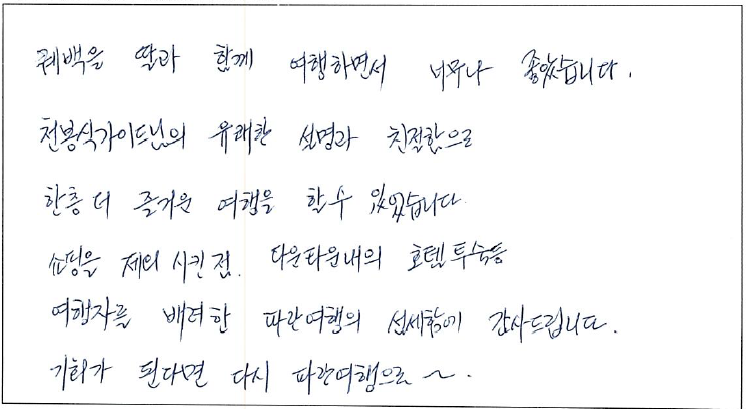 퀘백을 딸과 함께 여행하면서 너무나 좋았습니다.
천봉식가이드님의 유쾌한 설명과 친절함으로
한층 더 즐거운 여행을 할 수 있었습니다.
쇼핑을 제외시킨점. 다운타운내의 호텔투숙등
여행자를 배려한 파란여행의 섬세함에 감사드립니다.
기회가 된다면 다시 파란여행으로 ~.